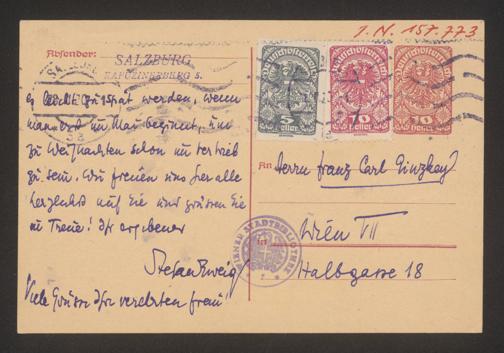 I.N. 157.773
Absender:
SALZBURG
KAPUZINERBERG 5.
Deutschösterreich
5
Heller
Deutschösterreich
10
Heller
Deutschösterreich
10
Heller
zu spät werden, wenn
man erst im Mai beginnt, um
zu Weihnachten schon im Vertrieb
zu sein. Wir freuen uns hier alle
herzlichst auf Sie und grüssen Sie
in Treue! Ihr ergebener
Stefan Zweig
Viele Grüsse Ihrer verehrten Frau!
An Herrn Franz Carl Ginzkey
in Wien VII
Halbgasse 18
WIENER STADTBIBLIOTHEK